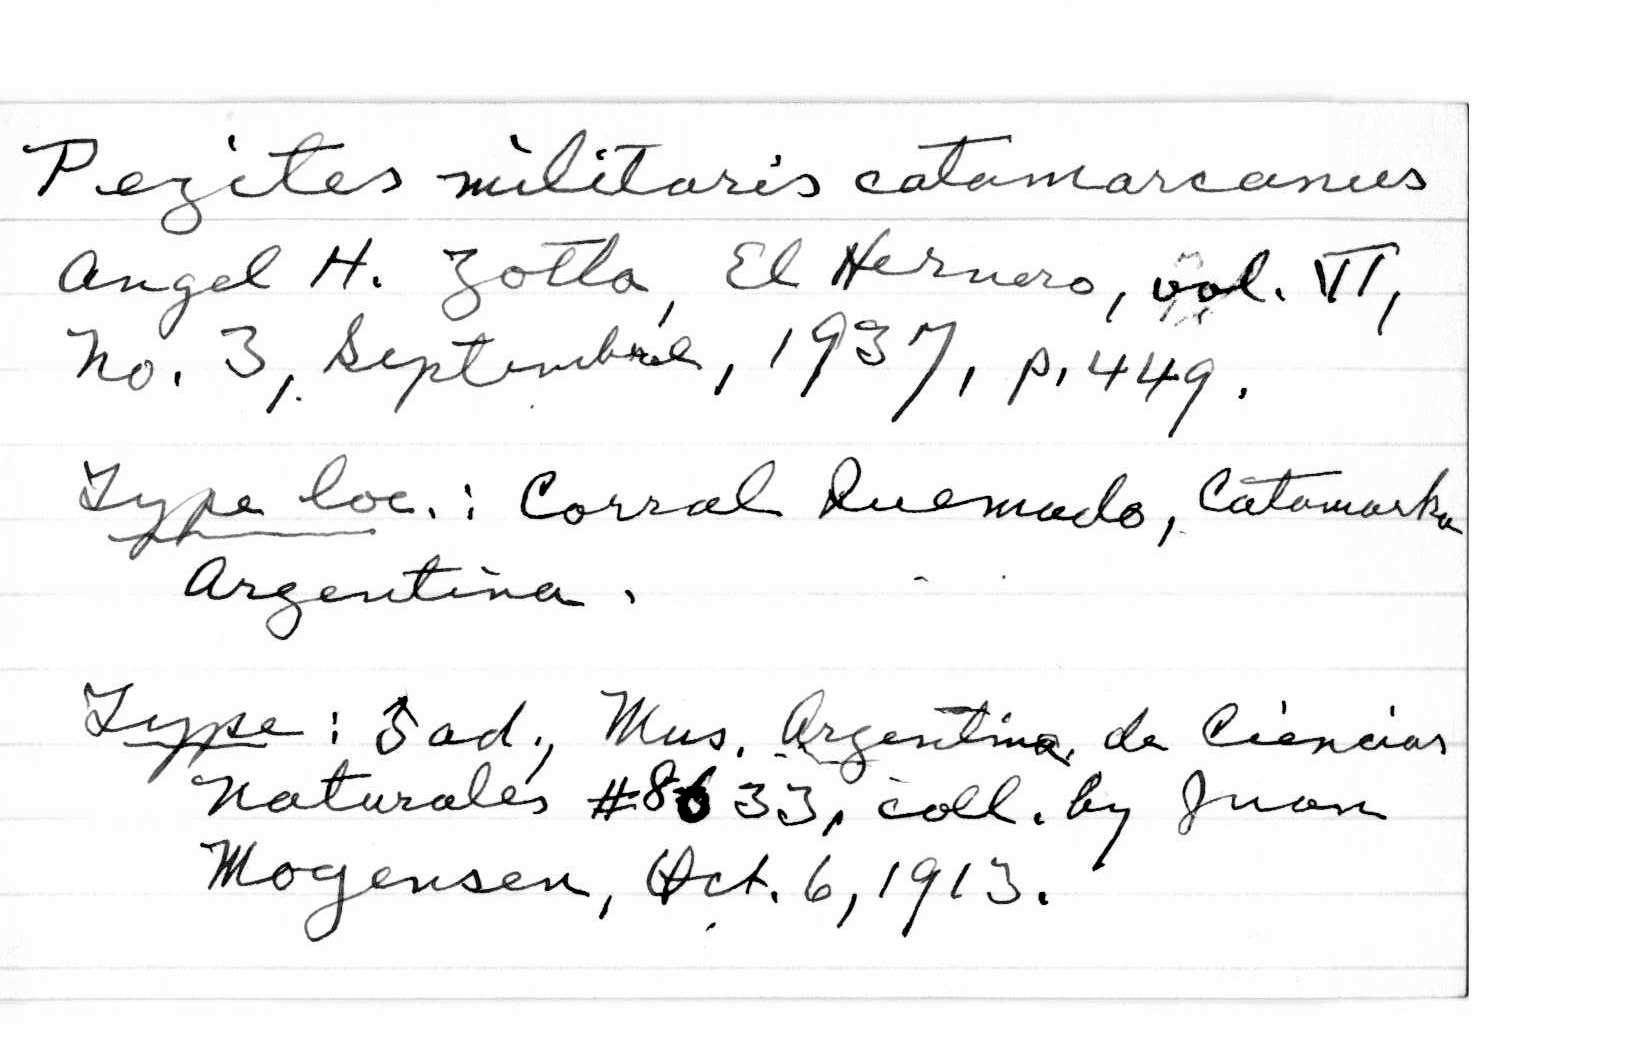 Pezites militaris catamarcanus
Angel H. Zotta, El Hernero, vol. VI,
No. 3, Septembre, 1937, p. 449.
Type loc.: Corral Quemado, Catamarka
Argentina.
Type: ♂ ad., Mus. Argentina de Ciencias
Naturales #8633, coll. by Juan
Mogensen, Oct. 6, 1913.